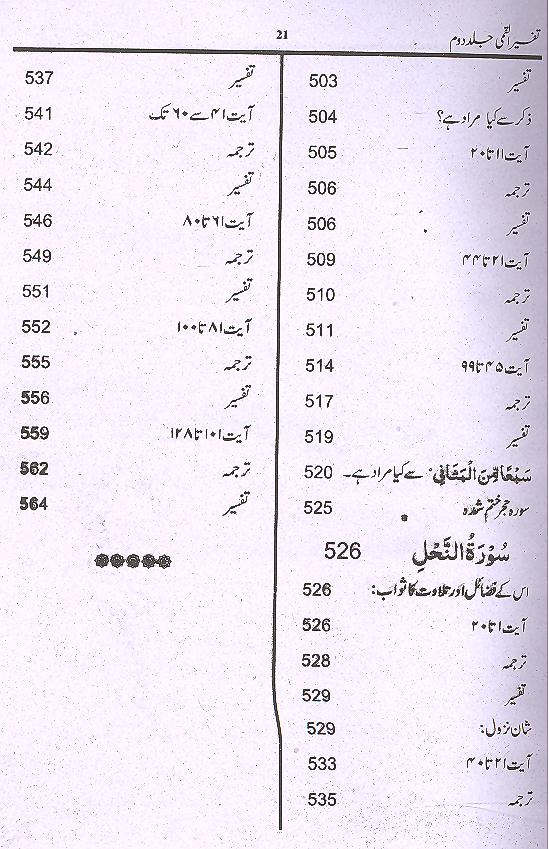 تفسیر القمی جلد دوم 21
تفسیر 503
ذکر سے کیا مراد ہے؟ 504
آیت ۱۱ تا ۲۰ 505
ترجمہ 506
تفسیر 506
آیت ۲۱ تا ۴۴ 509
ترجمہ 510
تفسیر 511
آیت ۴۵ تا ۹۹ 514
ترجمہ 517
تفسیر 519
سَبْعًا مِّنَ الْمَثَانِی سے کیا مراد ہے۔ 520
سورہ حجر ختم شدہ 525
سُوْرَةُ النَّحْلِ 526
اس کے فضائل اور تلاوت کا ثواب: 526
آیت ۱ تا ۲۰ 526
ترجمہ 528
تفسیر 529
شان نزول: 529
آیت ۲۱ تا ۴۰ 533
ترجمہ 535
تفسیر 537
آیت ۴۱ سے ۶۰ تک 541
ترجمہ 542
تفسیر 544
آیت ۶۱ تا ۸۰ 546
ترجمہ 549
تفسیر 551
آیت ۸۱ تا ۱۰۰ 552
ترجمہ 555
تفسیر 556
آیت ۱۰۱ تا ۱۲۸ 559
ترجمہ 562
تفسیر 564